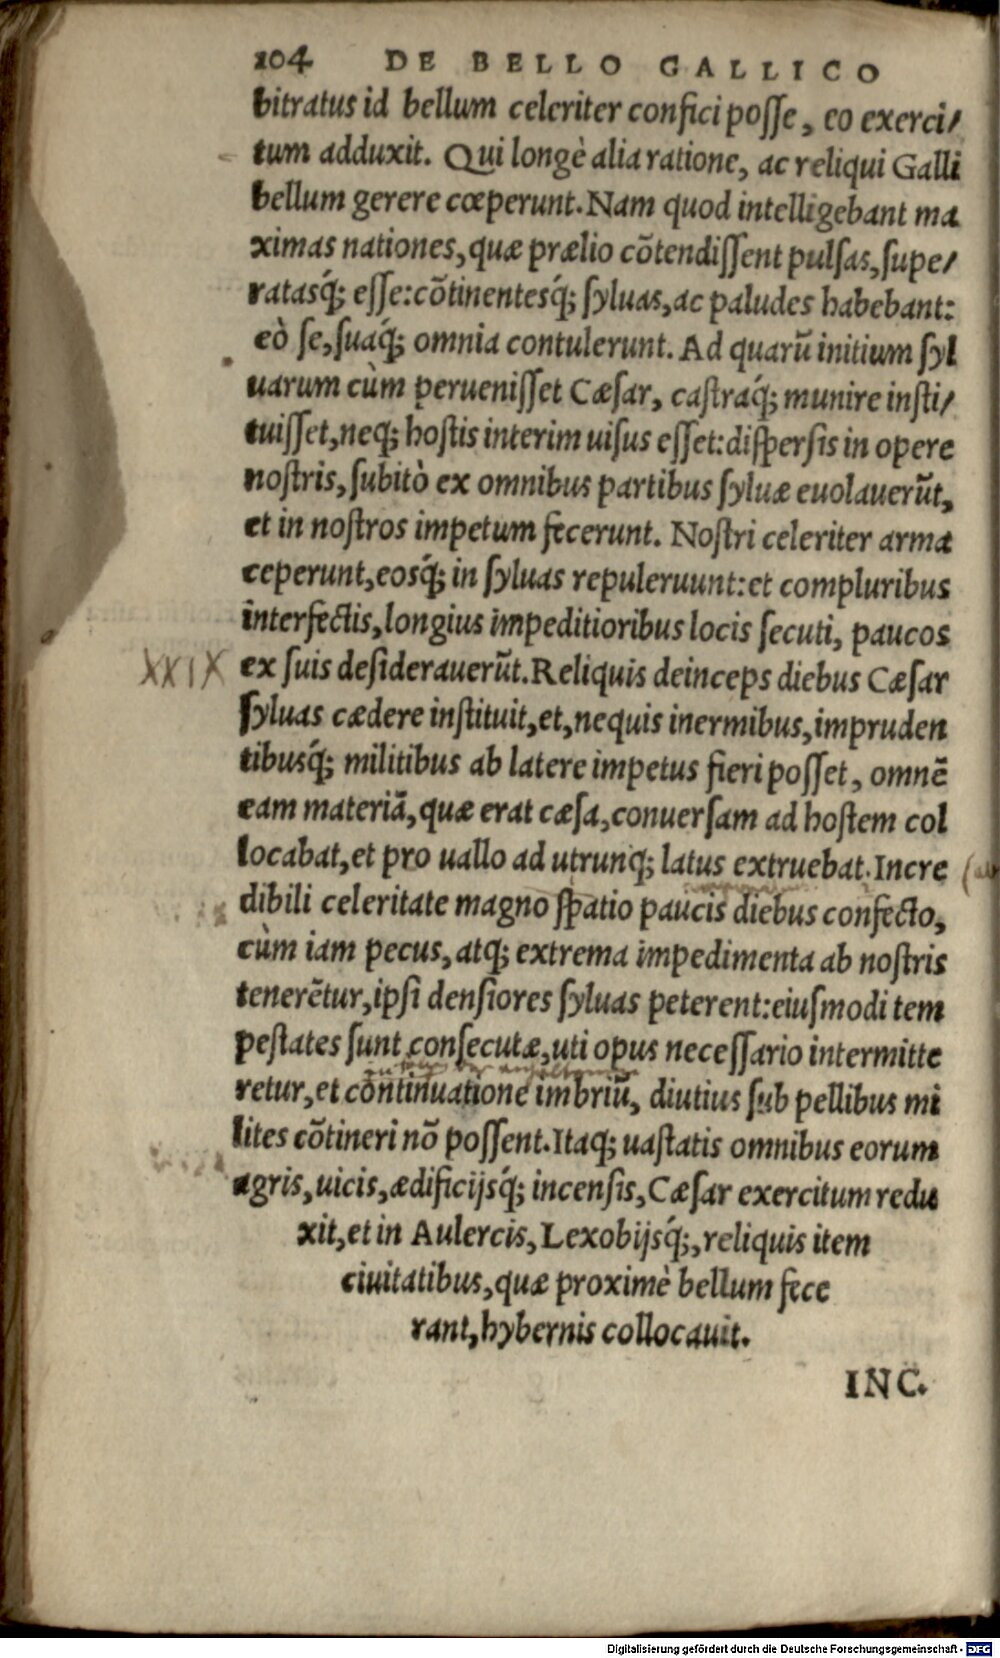 104 DE BELLO GALLICO
bitratus id bellum celeriter confici posse, eo exerci/
tum adduxit. Qui longè alia ratione, ac reliqui Galli
bellum gerere cœperunt. Nam quod intelligebant ma
ximas nationes, quæ prælio cõtendissent pulsas, supe/
ratasq́; esse: cõtinentesq́; syluas, ac paludes habebant:
eò se, suaq́; omnia contulerunt. Ad quarũ initium syl
uarum cùm peruenisset Cæsar, castraq́; munire insti/
tuisset, neq; hostis interim uisus esset: dispersis in opere
nostris, subitò ex omnibus partibus syluæ euolauerũt,
et in nostros impetum fecerunt. Nostri celeriter arma
ceperunt, eosq́; in syluas repuleruunt: et compluribus
interfectis, longius impeditioribus locis secuti, paucos
XXIX ex suis desiderauerũt. Reliquis deinceps diebus Cæsar
syluas cædere instituit, et, nequis inermibus, impruden
tibusq́; militibus ab latere impetus fieri posset, omnẽ
eam materiã, quæ erat cæsa, conuersam ad hostem col
locabat, et pro uallo ad utrunq; latus extruebat. Incre
dibili celeritate magno spatio paucis diebus confecto,
cùm iam pecus, atq; extrema impedimenta ab nostris
tenerẽtur, ipsi densiores syluas peterent: eiusmodi tem
pestates sunt consecutæ, uti opus necessario intermitte
retur, et cõntinuatione imbriũ, diutius sub pellibus mi
lites cõtineri nõ possent. Itaq; uastatis omnibus eorum
agris, uicis, ædificijsq́; incensis, Cæsar exercitum redu
xit, et in Aulercis, Lexobijsq́;, reliquis item
ciuitatibus, quæ proximè bellum fece
rant, hybernis collocauit.
INC.
Digitalisierung gefördert durch die Deutsche Forschungsgemeinschaft - DFG